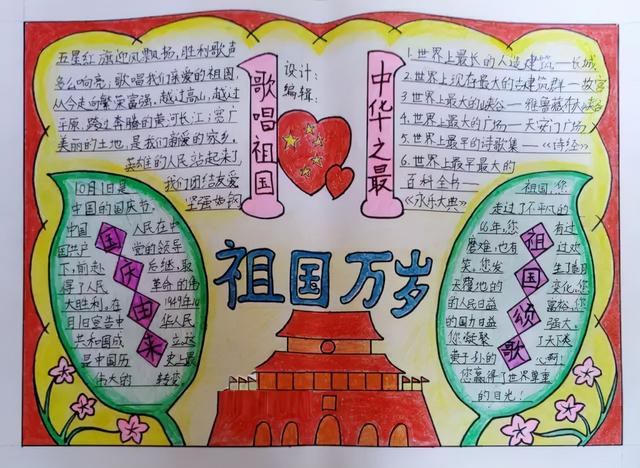 五星红旗迎风飘扬,胜利歌声
多么响亮;歌唱我们亲爱的祖国,
从今走向繁荣富强。越过高山,越过
平原,跨过奔腾的黄河长江;宽广
美丽的土地,是我们亲爱的家乡,
英雄的人民站起来了
我们团结友爱
坚强如钢
歌唱祖国
设计:
编辑:
中华之最
1.世界上最长的人造建筑——长城
2.世界上现存最大的古建筑群——故宫
3.世界上最大的峡谷——雅鲁藏布大峡谷
4.世界上最大的广场——天安门广场
5.世界上最早的诗歌集——《诗经》
6.世界上最早最大的
百科全书——
《永乐大典》
祖国万岁
10月1日是
中国的国庆节,
中国 人民在中
国共产 党的领导
下,前赴 后继,取
得了人民 革命的伟
大胜利。在 1949年10
月1日宣告中 华人民
共和国成 立,这
是中国历 史上最
伟大的 转变
国庆由来
祖国,您
走过了不平凡的
64年,您 有过
磨难,也有 过欢
笑,您发 生了翻
天覆地的 变化,您
的人民日益 富裕,您
的国力日益 强大,
您凝聚 了天下
炎黄子孙的 心啊!
您赢得了世界尊重
的目光!
祖国颂歌